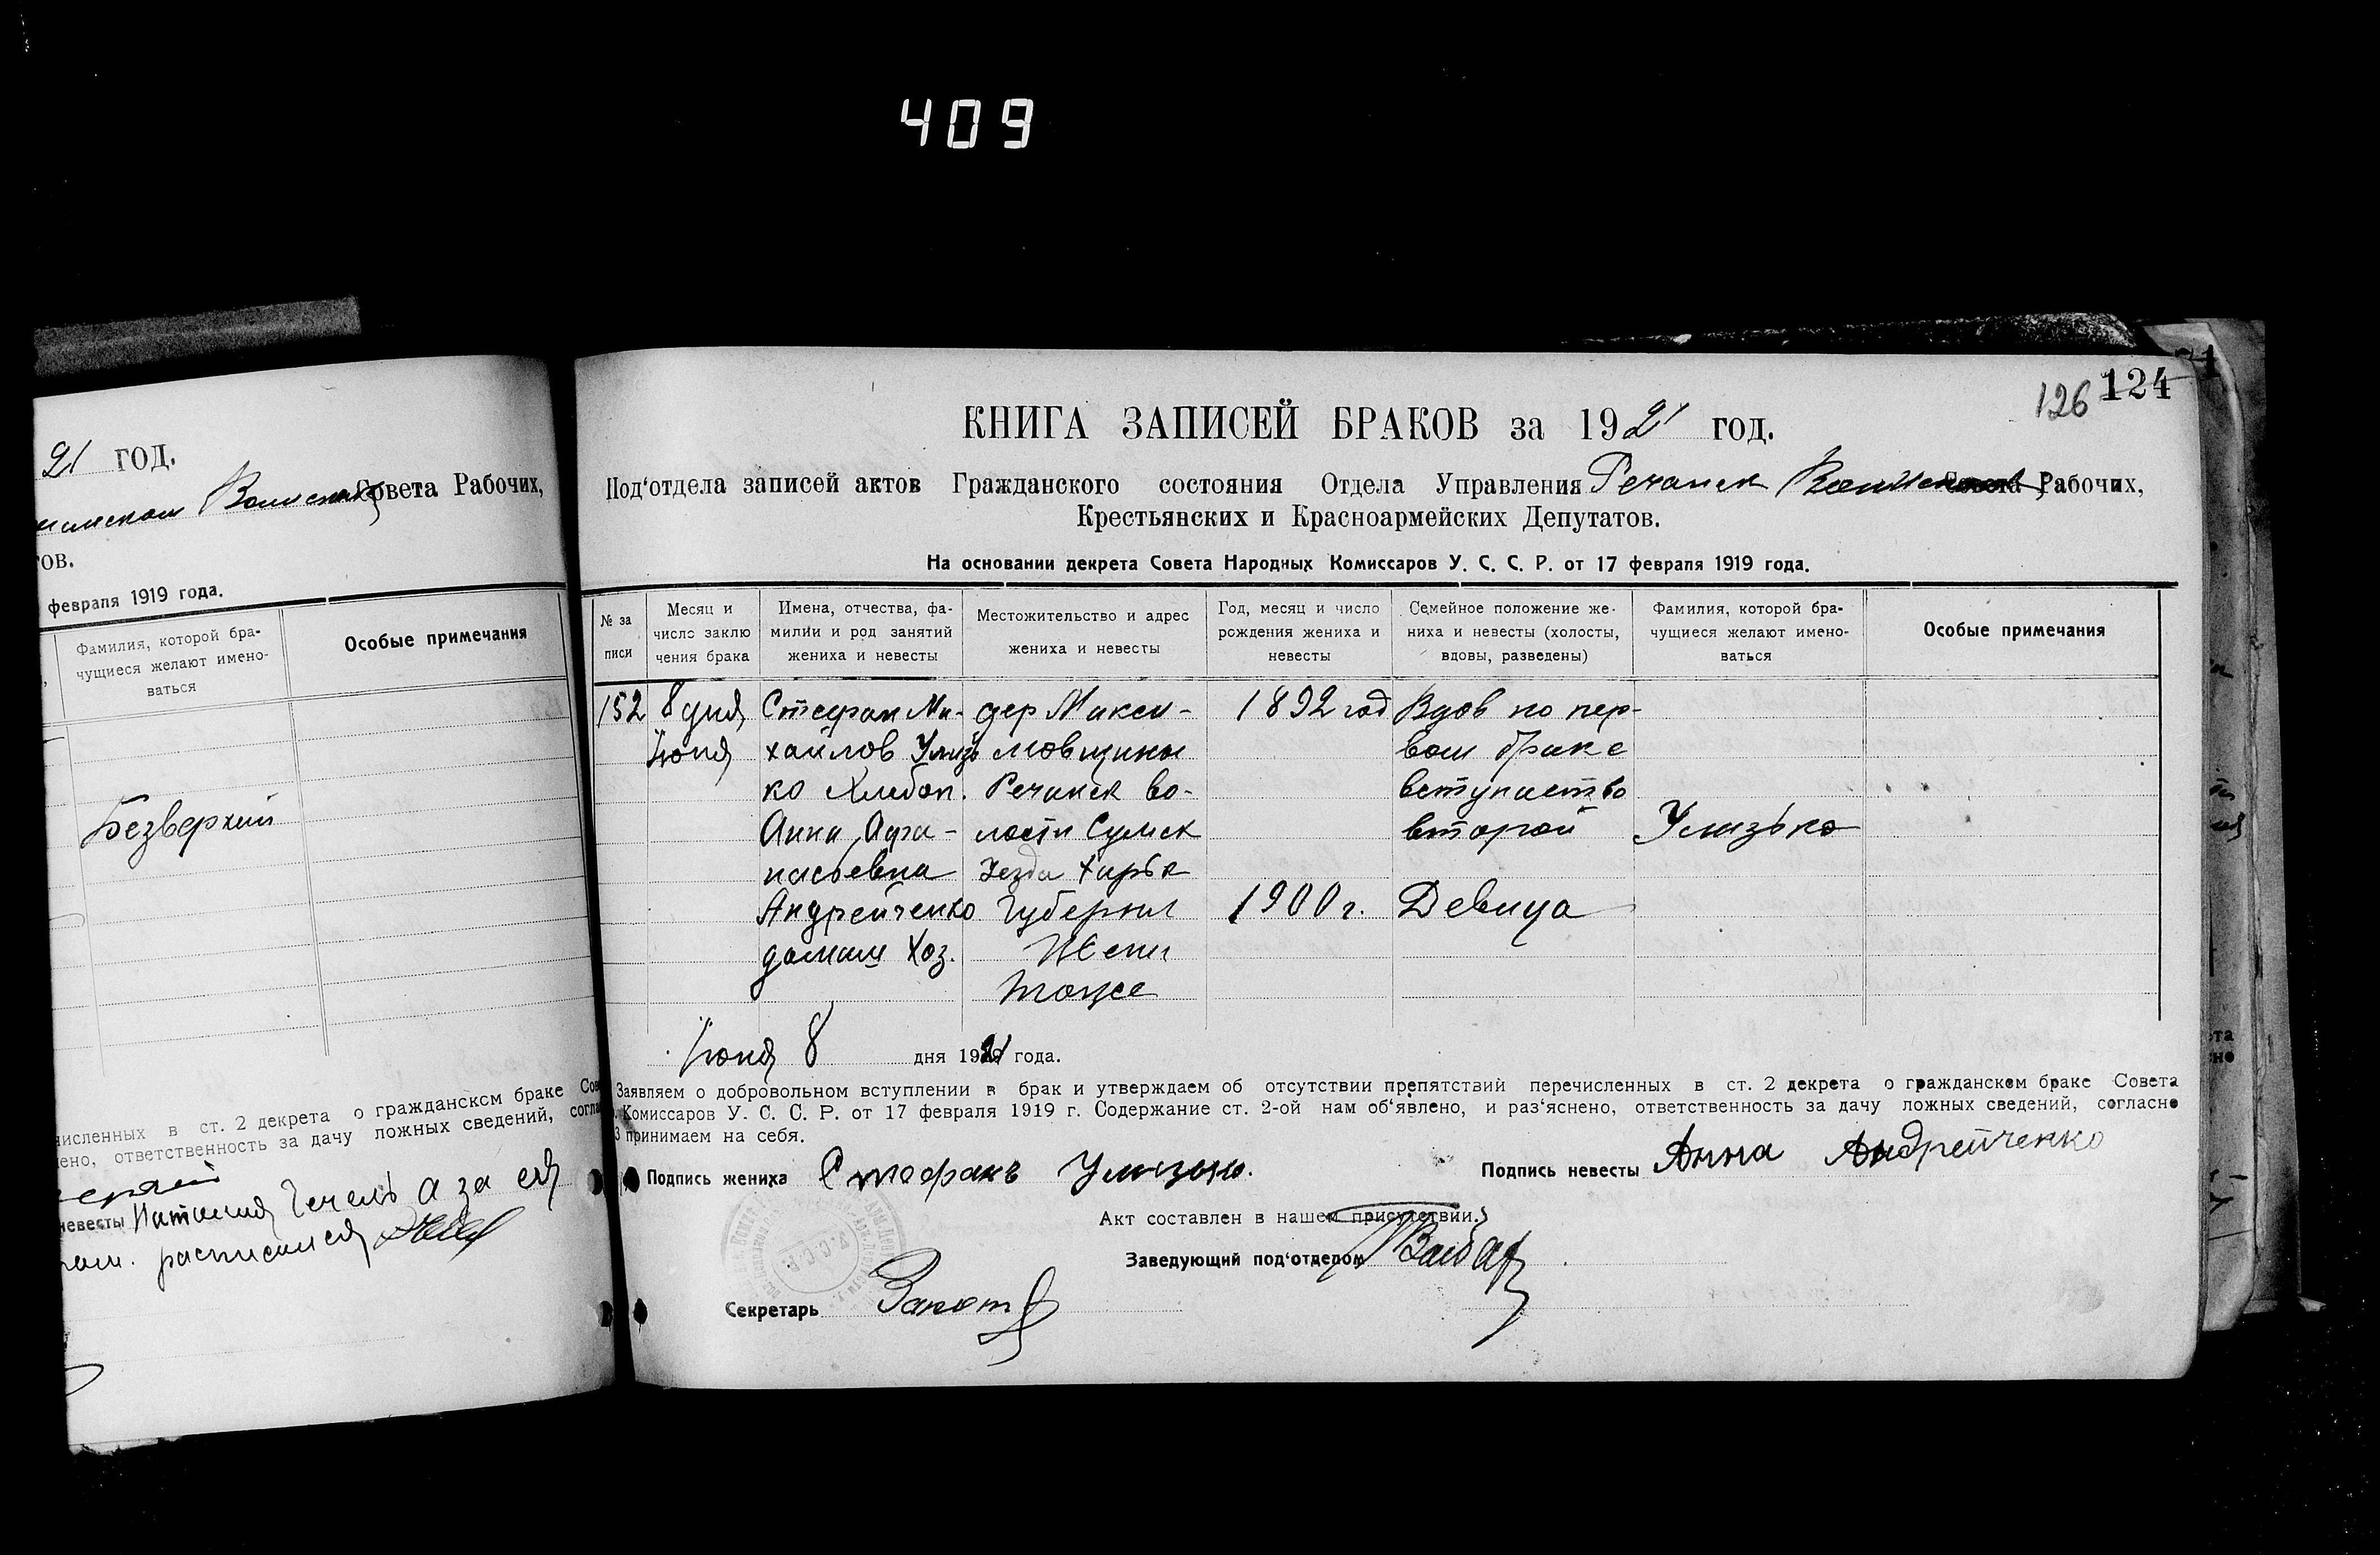 409
21 год.
Совета Рабочих,
ов.
февраля 1919 года.
Фамилия, которой бра-
чущиеся желают имено-
ваться
Особые примечания
Безверхий
численных в ст. 2 декрета о гражданском браке
ответственность за дачу ложных сведений,
невесты Наталия Чечель а за ея
расписался
124
126
КНИГА ЗАПИСЕЙ БРАКОВ за 1921 год.
Под'отдела записей актов Гражданского состояния Отдела Управления Речанск Рабочих,
Крестьянских и Красноармейских Депутатов.
На основании декрета Совета Народных Комиссаров У. С. С. Р. от 17 февраля 1919 года.
№ за
писи
Месяц и
число заклю
чения брака
Имена, отчества, фа-
милии и род занятий
жениха и невесты
Местожительство и адрес
жениха и невесты
Год, месяц и число
рождения жениха и
невесты
Семейное положение же-
ниха и невесты (холосты,
вдовы, разведены)
Фамилия, которой бра-
чущиеся желают имено-
ваться
Особые примечания
152
8 дня
Июня
Стефан Ми-
хайлов Улизь
ко Хлебоп.
Анна Афа-
насьевна
Андрейченко
домаш Хоз.
дер Макси-
мовщины
Речанск во-
лости Сумск
Уезда Харьк
Губернии
Жени
тоже
1892 год
1900 г.
Вдов по пер-
вом браке
вступаетъ во
второй
Девица
Улизько
Июня 8 дня 1921 года.
Заявляем о добровольном вступлении в брак и утверждаем об отсутствии препятствий перечисленных в ст. 2 декрета о гражданском браке Совета
Комиссаров У. С. С. Р. от 17 февраля 1919 г. Содержание ст. 2-ой нам об'явлено, и раз'яснено, ответственность за дачу ложных сведений, согласно
3 принимаем на себя.
Подпись жениха Стефанъ Улизько.
Подпись невесты Анна Андрейченко
Акт составлен в нашем присутствии.
Заведующий под'отделом
Секретарь